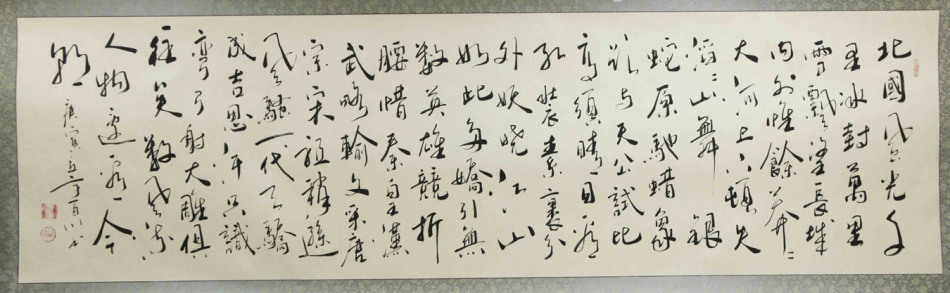 北國风光千
里冰封萬里
雪飄望長城
内外惟餘莽〻
大河上下頓失
滔〻山舞銀
蛇原馳蜡象
欲与天公試比
高須晴日看
紅裝素裹分
外妖嬈江山
如此多嬌引無
數英雄競折
腰惜秦皇漢
武略輸文采唐
宗宋祖稍遜
风騷一代天驕
成吉思汗只識
彎弓射大雕俱
往矣數风流
人物還看今
朝
庚寅 百川书